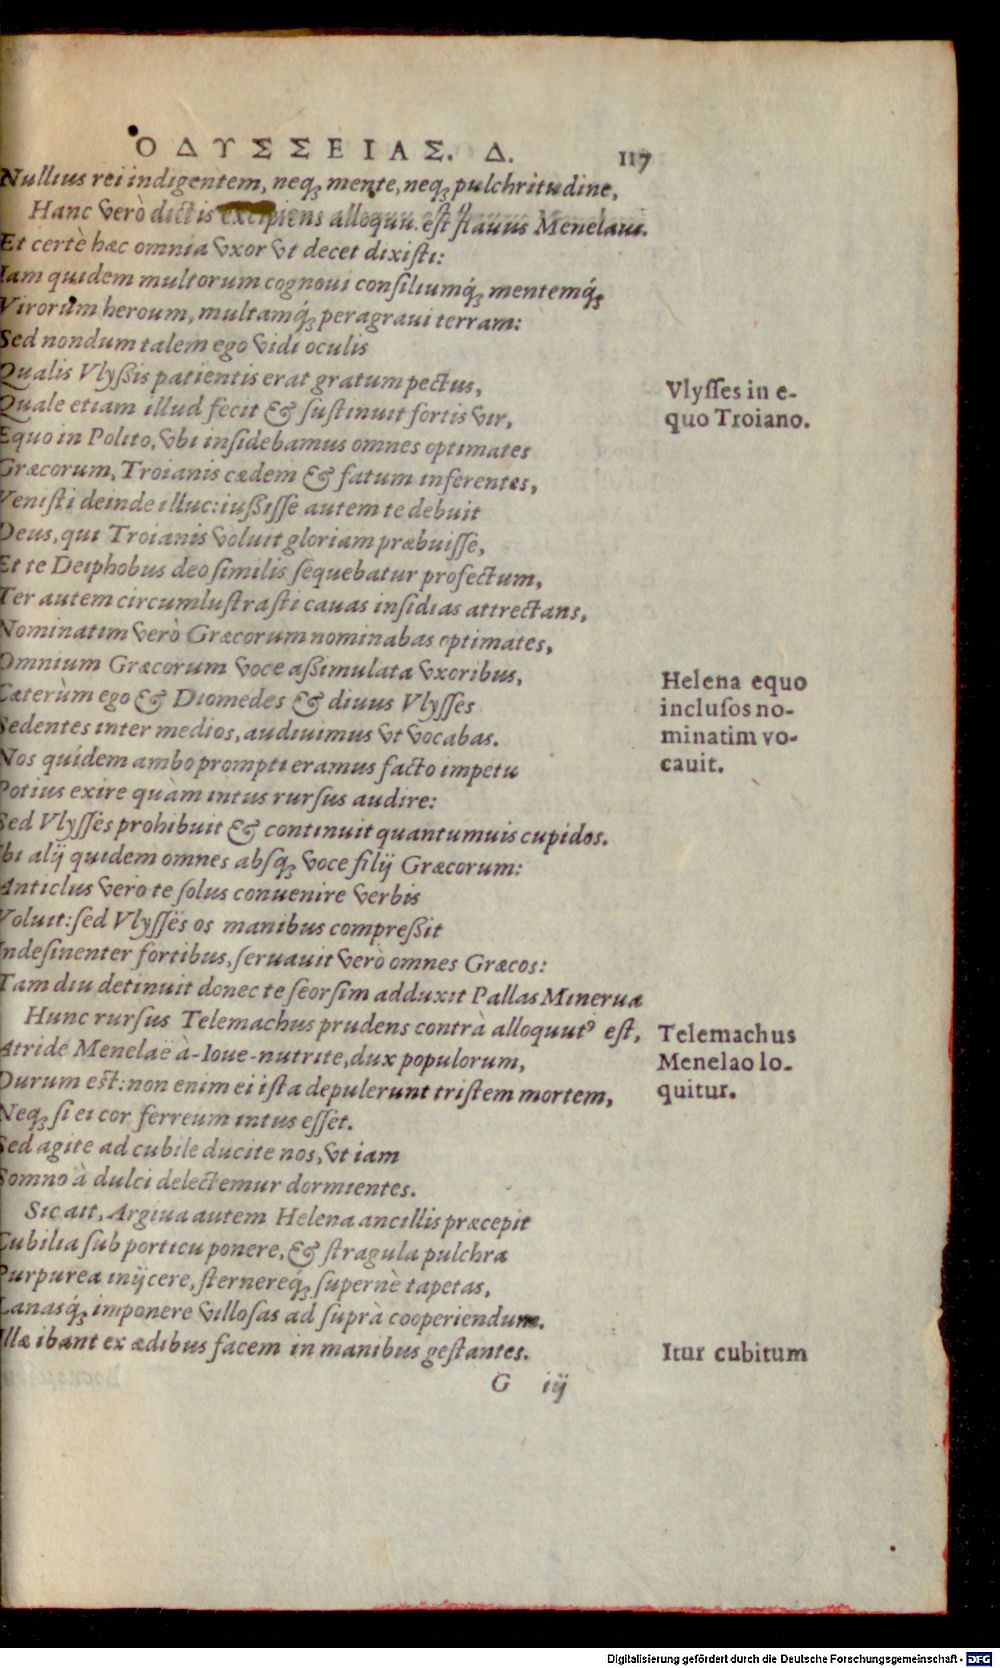 ΟΔΥΣΣΕΙΑΣ. Δ. 117
Nullius rei indigentem, neq; mente, neq; pulchritudine,
Hanc verò dictis excipiens alloquu. est flauus Menelaus.
Et certè hæc omnia vxor vt decet dixisti:
Iam quidem multorum cognoui consiliumq́; mentemq́;
Virorum heroum, multamq́; peragraui terram:
Sed nondum talem ego vidi oculis
Qualis Vlyßis patientis erat gratum pectus,
Quale etiam illud fecit & sustinuit fortis vir,
Equo in Polito, vbi insidebamus omnes optimates
Græcorum, Troianis cædem & fatum inferentes,
Venisti deinde illuc: iußisse autem te debuit
Deus, qui Troianis voluit gloriam præbuisse,
Et te Deiphobus deo similis sequebatur profectum,
Ter autem circumlustrasti cauas insidias attrectans,
Nominatim verò Græcorum nominabas optimates,
Omnium Græcorum voce aßimulata vxoribus,
Cæterùm ego & Diomedes & diuus Vlysses
Sedentes inter medios, audiuimus vt vocabas.
Nos quidem ambo prompti eramus facto impetu
Potius exire quàm intus rursus audire:
Sed Vlysses prohibuit & continuit quantumuis cupidos.
Ibi alij quidem omnes absq; voce filij Græcorum:
Anticlus verò te solus conuenire verbis
Voluit: sed Vlyssës os manibus compreßit
Indesinenter fortibus, seruauit verò omnes Græcos:
Tam diu detinuit donec te seorsim adduxit Pallas Minerua
Hunc rursus Telemachus prudens contrà alloquutꝰ est,
Atride Menelaë à-Ioue-nutrite, dux populorum,
Durum est: non enim ei ista depulerunt tristem mortem,
Neq; si ei cor ferreum intus esset.
Sed agite ad cubile ducite nos, vt iam
Somno à dulci delectemur dormientes.
Sic ait, Argiua autem Helena ancillis præcepit
Cubilia sub porticu ponere, & stragula pulchra
Purpurea inijcere, sternereq́; supernè tapetas,
Lanasq́; imponere villosas ad suprà cooperiendum.
Illæ ibant ex ædibus facem in manibus gestantes.
G iij
Vlysses in e-
quo Troiano.
Helena equo
inclusos no-
minatim vo-
cauit.
Telemachus
Menelao lo-
quitur.
Itur cubitum
Digitalisierung gefördert durch die Deutsche Forschungsgemeinschaft - DFG